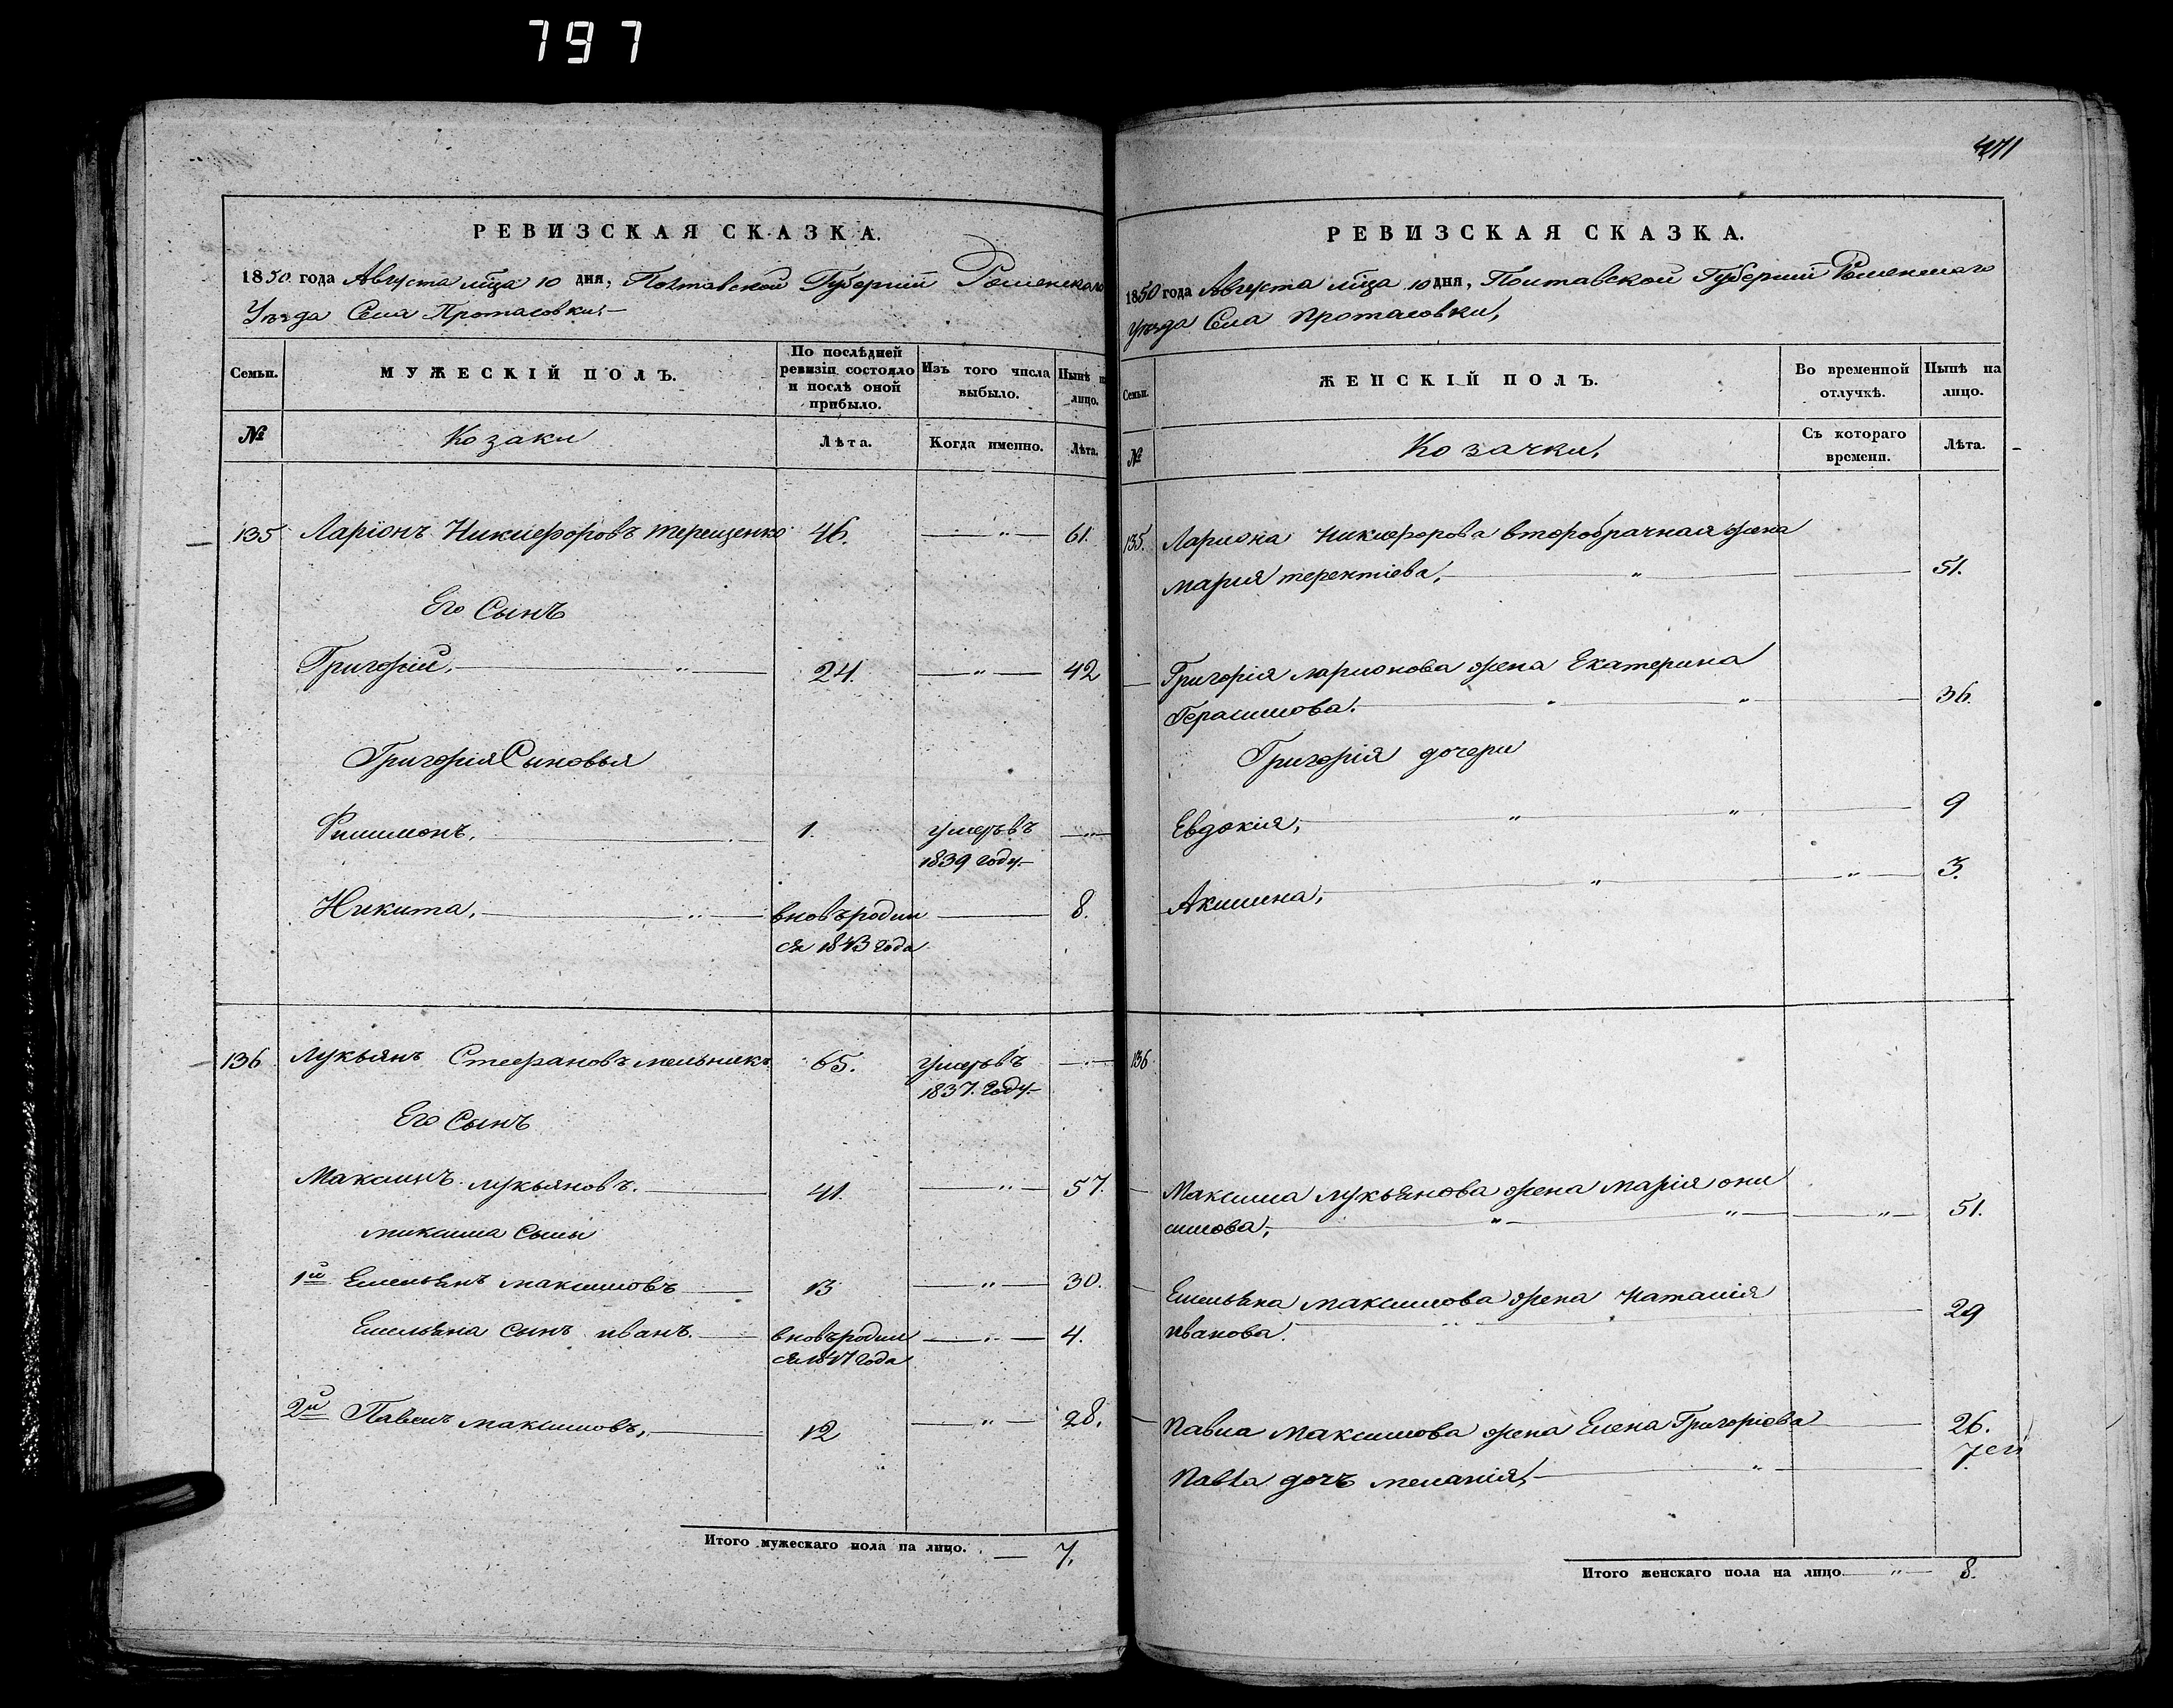 797
РЕВИЗСКАЯ СКАЗКА.
1850 года Августа мѣца 10 дня, Полтавской Губерніи Роменскаго
Уѣзда Села Протасовки,
Семьи.
МУЖЕСКІЙ ПОЛЪ.
По послѣдней
ревизіи состояло
и послѣ оной
прибыло.
Изъ того числа
выбыло.
Нынѣ на
лицо.
№
Козаки
Лѣта.
Когда именно.
Лѣта.
135 Ларіонъ Никифоровъ Терещенко 46. — " — 61.
Его Сынъ
Григорій, " 24. — " — 42
Григорія Сыновья
Филимонъ, 1. умеръ въ — " —
1839 году
Никита, " вновь роди 8.
ся 1843 года
136 Лукьянъ Стефановъ мельникъ 65. умеръ въ
1837. году
Его Сынъ
Максимъ лукьяновъ. 41. — " — 57.
максима сыны
1й Емельянъ максимовъ 13 — " — 30.
Емельяна сынъ иванъ. вновь роди — " — 4.
ся 1847 года
2й Павелъ максимовъ, 12 — " — 28.
Итого мужескаго пола на лицо. — 7.
471
РЕВИЗСКАЯ СКАЗКА.
1850 года Августа мѣца 10 дня, Полтавской Губерніи Роменскаго
уѣзда Села Протасовки,
Семьи.
ЖЕНСКІЙ ПОЛЪ.
Во временной
отлучкѣ.
Нынѣ на
лицо.
№
Козачки,
Съ котораго
времени.
Лѣта.
135. Лариона Никифорова второбрачная жена
мария терентіева, " 51.
Григорія ларионова жена Екатерина
Герасимова. " " 36.
Григорія дочери
Евдокія, " " 9
Акилина, " " 3.
136
Максима лукьянова жена марія они
симова, " " " 51.
Емельяна максимова жена Наталія
иванова. 29
Павла максимова жена Елена Григоріева 26.
Павла дочь меланія, " 7
Итого женскаго пола на лицо " 8.